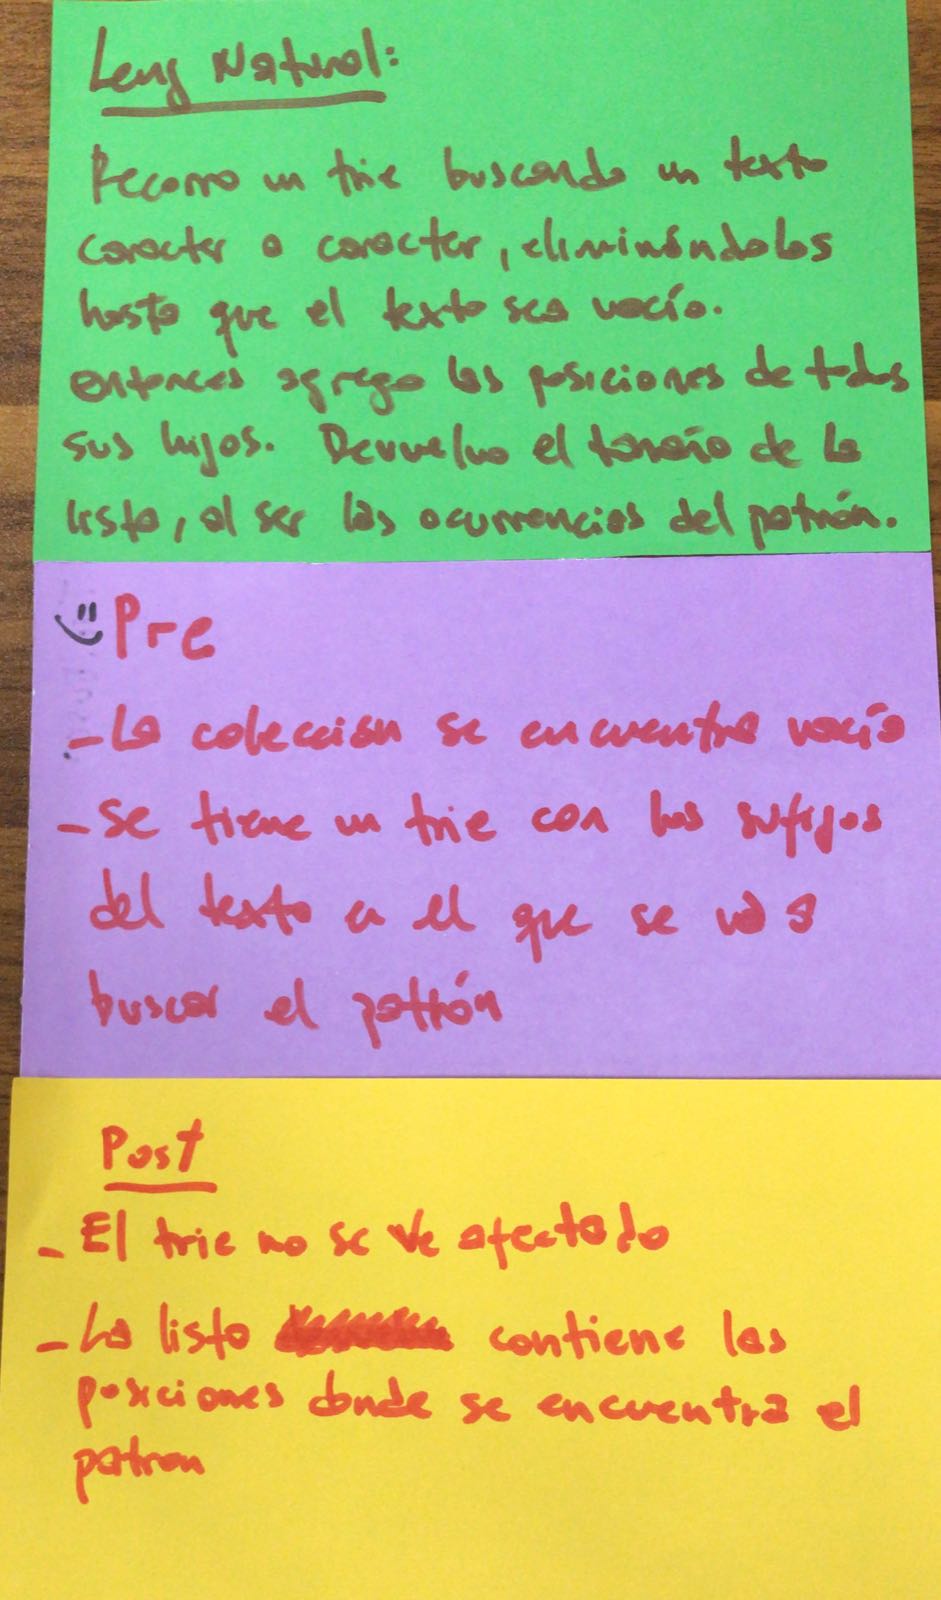 Leng Natural:
Recorro un trie buscando un texto
caracter a caracter, eliminándolos
hasta que el texto sea vacío.
entonces agrego las posiciones de todos
sus hijos. Devuelvo el tamaño de la
lista, al ser las ocurrencias del patrón.
Pre
- La colección se encuentra vacía
- Se tiene un trie con los sufijos
del texto en el que se va a
buscar el patrón
Post
- El trie no se ve afectado
- La lista contiene las
posiciones donde se encuentra el
patron